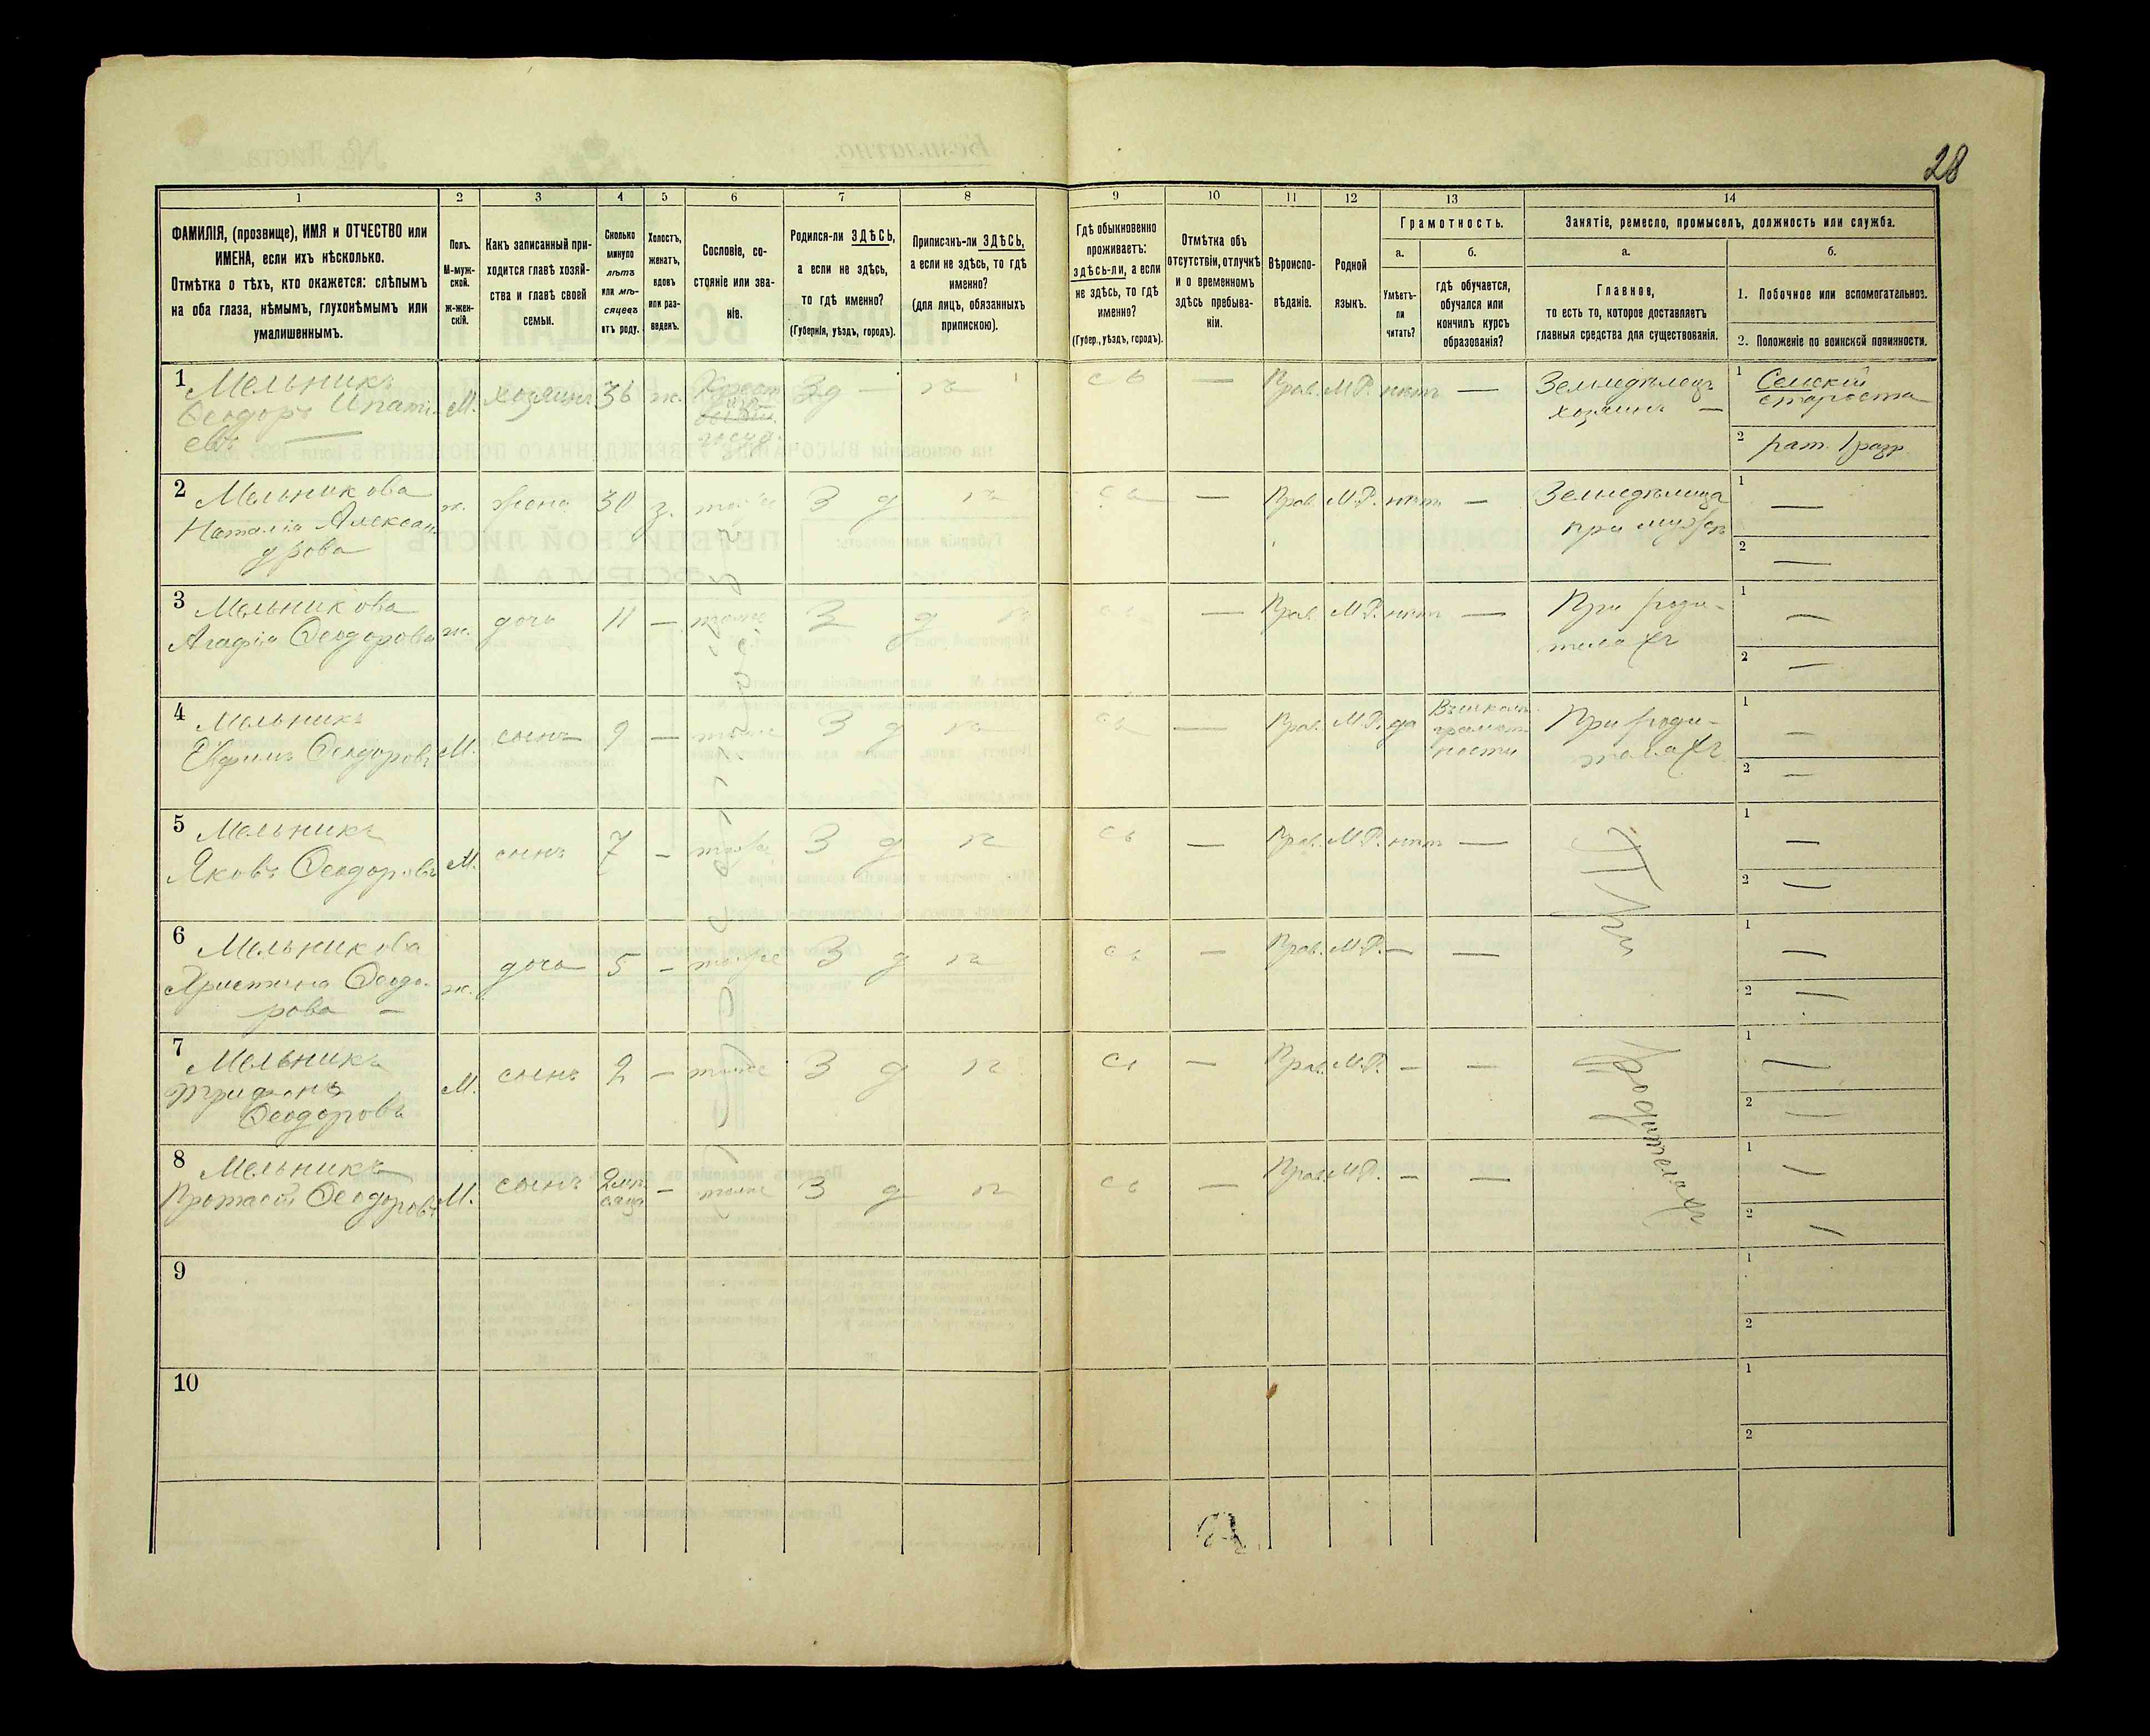 28
1
2
3
4
5
6
7
8
9
10
11
12
13
14
ФАМИЛІЯ, (прозвище), ИМЯ и ОТЧЕСТВО или
ИМЕНА, если ихъ нѣсколько.
Отмѣтка о тѣхъ, кто окажется: слѣпымъ
на оба глаза, нѣмымъ, глухонѣмымъ или
умалишеннымъ.
Полъ.
М-муж-
ской.
ж-жен-
скій.
Какъ записанный при-
ходится главѣ хозяй-
ства и главѣ своей
семьи.
Сколько
минуло
лѣтъ
или мѣ-
сяцевъ
отъ роду.
Холостъ,
женатъ,
вдовъ
или раз-
веденъ.
Сословіе, со-
стояніе или зва-
ніе.
Родился-ли ЗДѢСЬ,
а если не здѣсь,
то гдѣ именно?
(Губернія, уѣздъ, городъ).
Приписанъ-ли ЗДѢСЬ,
а если не здѣсь, то гдѣ
именно?
(для лицъ, обязанныхъ
припискою).
Гдѣ обыкновенно
проживаетъ:
здѣсь-ли, а если
не здѣсь, то гдѣ
именно?
(Губер., уѣздъ, городъ).
Отмѣтка объ
отсутствіи, отлучкѣ
и о временномъ
здѣсь пребыва-
ніи.
Вѣроиспо-
вѣданіе.
Родной
языкъ.
Грамотность.
а.
Умѣетъ-
ли
читать?
б.
гдѣ обучается,
обучался или
кончилъ курсъ
образованія?
Занятіе, ремесло, промыселъ, должность или служба.
а.
Главное,
то есть то, которое доставляетъ
главныя средства для существованія.
б.
1. Побочное или вспомогательное.
2. Положеніе по воинской повинности.
1 Мельникъ
Ѳеодоръ Ипаті-
евъ —
М. хозяинъ 36 ж. Крест. Зд —
— Прав. М.Р. нѣтъ — Земледѣлецъ
хозяинъ —
1 Сельскій
староста
2 рат. 1 разр.
2 Мельникова
Наталія Алексан
дрова
ж. жена 30 з. тоже З д
— Прав. М.Р. нѣтъ — Земледѣлица
при мужѣ
1 —
2 —
3 Мельникова
Агафія Ѳеодорова
ж. дочь 11 — тоже З д
— Прав. М.Р. нѣтъ — При роди-
теляхъ
1 —
2 —
4 Мельникъ
Ефимъ Ѳеодоровъ
М. сынъ 9 — тоже З д
— Прав. М.Р. да Въ школѣ
грамот-
ности
При роди-
теляхъ
1 —
2 —
5 Мельникъ
Яковъ Ѳеодоровъ
М. сынъ 7 — тоже З д
— Прав. М.Р. нѣтъ — При
1 —
2 —
6 Мельникова
Христина Ѳеодо-
рова —
ж. дочь 5 — тоже З д
— Прав. М.Р. — —
1 —
2 —
7 Мельникъ
Трифонъ
Ѳеодоровъ
М. сынъ 2 — тоже З д
— Прав. М.Р. — — родителяхъ
1 —
2 —
8 Мельникъ
Протасій Ѳеодоровъ
М. сынъ 2 мѣ-
сяца
— тоже З д
— Прав. М.Р. — —
1 —
2 —
9
1
2
10
1
2